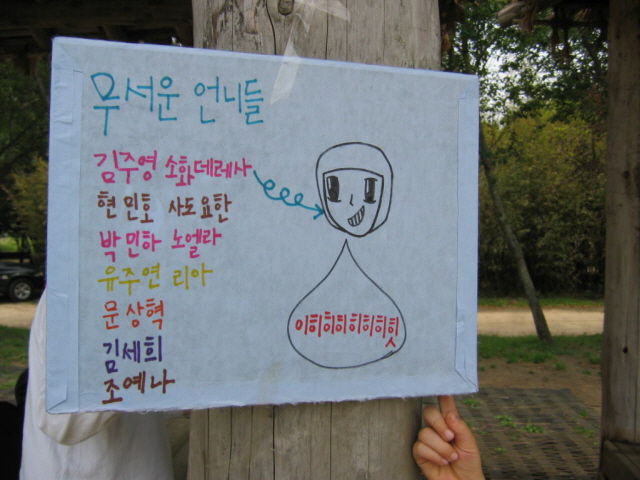 무서운 언니들
김주영 소화데레사
현민호 사도요한
박민하 노엘라
유주연 리아
문상혁
김세희
조예나
이히히히히히히힛